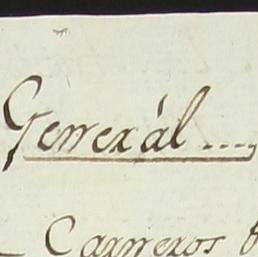 Gerrerál ....,
Carneros